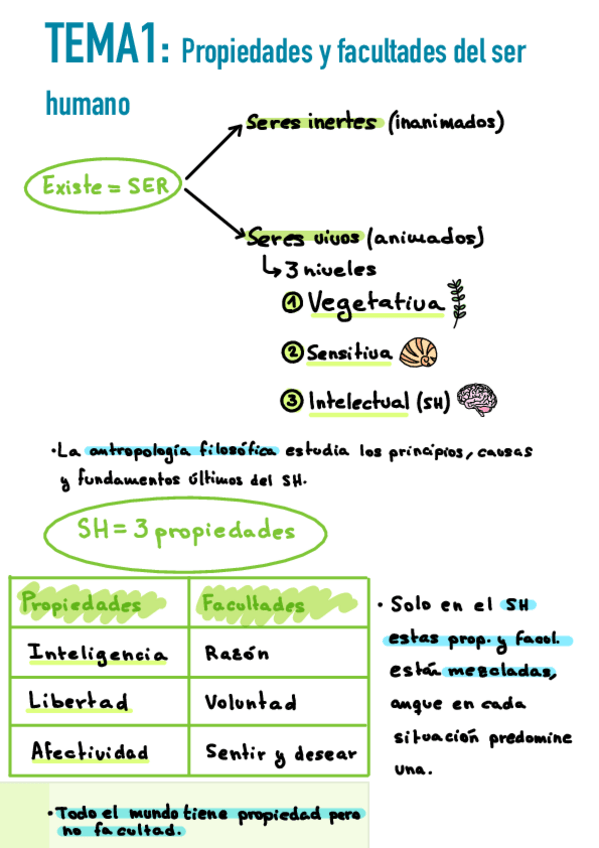 TEMA1: Propiedades y facultades del ser
humano
Seres inertes (inanimados)
Existe = SER
Seres vivos (animados)
↳ 3 niveles
1 Vegetativa
2 Sensitiva
3 Intelectual (SH)
· La antropología filosófica estudia los principios, causas
y fundamentos últimos del SH.
SH = 3 propiedades
Propiedades Facultades
Inteligencia Razón
Libertad Voluntad
Afectividad Sentir y desear
· Solo en el SH
estas prop. y facul.
están mezcladas,
aunque en cada
situación predomine
una.
· Todo el mundo tiene propiedad pero
no facultad.